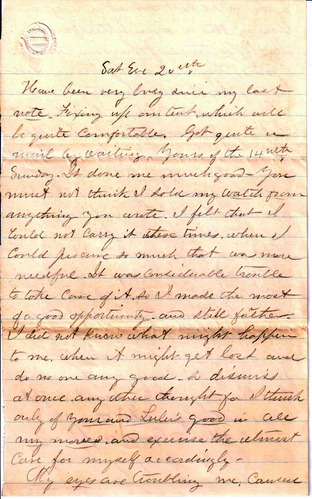 Sat Eve 20th
Have been very busy since my last
note. Fixing up our tent, which will
be quite comfortable. Got quite a
mail by waiting. Yours of the 14th
Sunday. It done me much good. You
must not think I sold my watch from
anything you wrote. I felt that I
could not carry it these times, when I
could procure so much that was more
needful. It was considerable trouble
to take care of it, so I made the most
of a good opportunity. and still further
I did not know what might happen
to me, when it might get lost and
do no one any good. so dismiss
at once any other thought for I think
only of your and Lulie's good in all
my moves, and exercise the utmost
care for myself accordingly.
My eyes are troubling me, caused